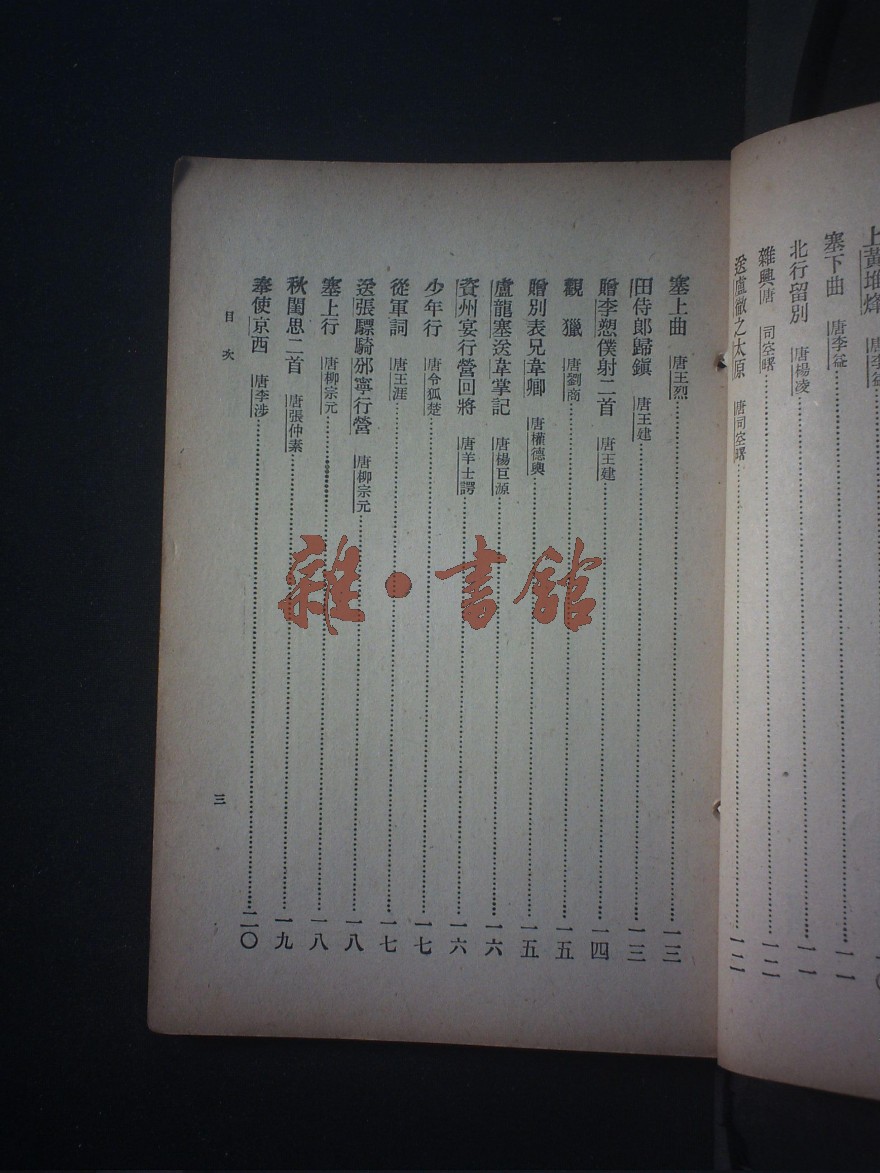 上黃堆烽 唐李益
塞下曲 唐李益 一一
北行留別 唐楊凌 一一
雜興 唐司空曙 一二
送盧徹之太原 唐司空曙 一二
塞上曲 唐王烈 一三
田侍郎歸鎮 唐王建 一三
贈李愬僕射二首 唐王建 一四
觀獵 唐劉商 一五
贈別表兄韋卿 唐權德輿 一五
盧龍塞送韋掌記 唐楊巨源 一六
資州宴行營回將 唐羊士諤 一六
少年行 唐令狐楚 一七
從軍詞 唐王涯 一七
送張驃騎邠寧行營 唐柳宗元 一八
塞上行 唐柳宗元 一八
秋閨思二首 唐張仲素 一九
奉使京西 唐李涉 二〇
目次
三
雜·書館